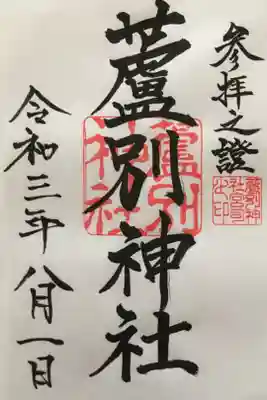 參拝之證
蘆別神社
蘆別神社
蘆別神社宮司之印
令和三年八月一日